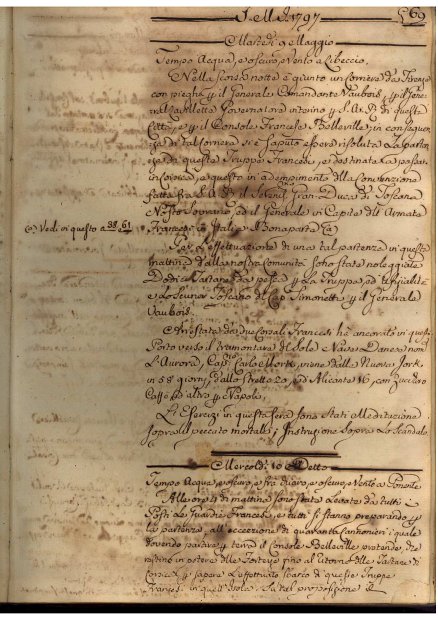 1797
69
Martedì 9 Maggio
Tempo Acqua, e oscuro, e Vento a Libeccio.
Nella scorsa notte è giunto un Corriere da Firenze
con pieghi p il Generale Comandante Vaubois, e p il
Governatore interino p S. A. R. di questa
Città, e p il Console Francese Belleville, in conseguen
za di tal corriera si è saputo essere risoluta la parten
za di questa Truppa Francese, e destinata a passare
in Corsica, e questo in adempimento della Convenzione
fatta fra S. A. R. il Seren. Gran Duca di Toscana
Nostro Sovrano, ed il Generale in Capite dell'Armata
(a) Vedi in questo a 38, 61 Francese in Italia Bonaparte (a)
Per l'effettuazione di una tal partenza in questa
mattina dalla nostra Comunità sono state noleggiate
Dodici Tartane da pesca p la Truppa, ed Ufizialità
e lo Toscano del Cap. Simonetti p il Generale
Vaubois.
Arrestata da due Corsali Francesi ha ancorato in questo
Porto verso il tramontare del Sole Nave Danese nom
L'Aurora, Cap. Carlo viene dalla Nuova Jork
in 58 giorni, dallo Stretto 20, ed Alicante 16, con Zucchero
Caffè ed altro p Napoli.
Li Esercizi in questa sera sono stati Meditazione
sopra il peccato mortale, e Instruzione sopra lo Scandalo
Mercoldì 10 Detto
Tempo Acqua, e oscuro, e fra chiaro, e oscuro, e Vento a Ponente
Alle ore 4 di mattina sono state levate da tutti i
Posti le Guardie Francesi, e tutti si stanno preparando p
la partenza all'eccezione di quaranta Cannonieri i quali
dovendo passare p terra il Console Belleville pretende, che
restino in ostaggio alle Fortezze fino al ritorno delle Tartane di
Corsica p sapere l'effettuato sbarco di queste Truppe
Francesi in quell'Isola. Su tal proposizione il